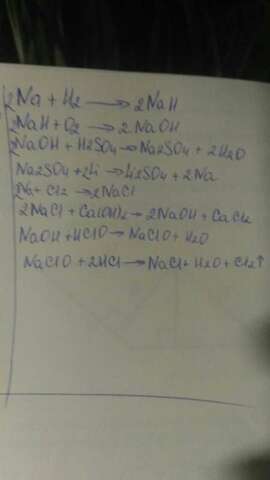 2Na + H2 → 2NaH
2NaH + O2 → 2NaOH
2NaOH + H2SO4 → Na2SO4 + 2H2O
Na2SO4 + 2Li → Li2SO4 + 2Na
2Na + Cl2 → 2NaCl
2NaCl + Ca(OH)2 → 2NaOH + CaCl2
NaOH + HClO → NaClO + H2O
NaClO + 2HCl → NaCl + H2O + Cl2↑